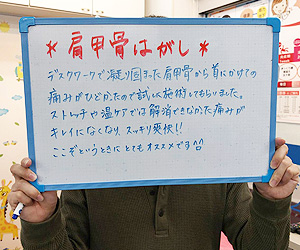 ＊肩甲骨はがし＊
デスクワークで凝り固まった肩甲骨から首にかけての
痛みがひどかったので試しに施術してもらいました。
ストレッチや温ケアでは解消できなかった痛みが
キレイになくなり、スッキリ爽快！！
ここぞというときにとてもオススメです